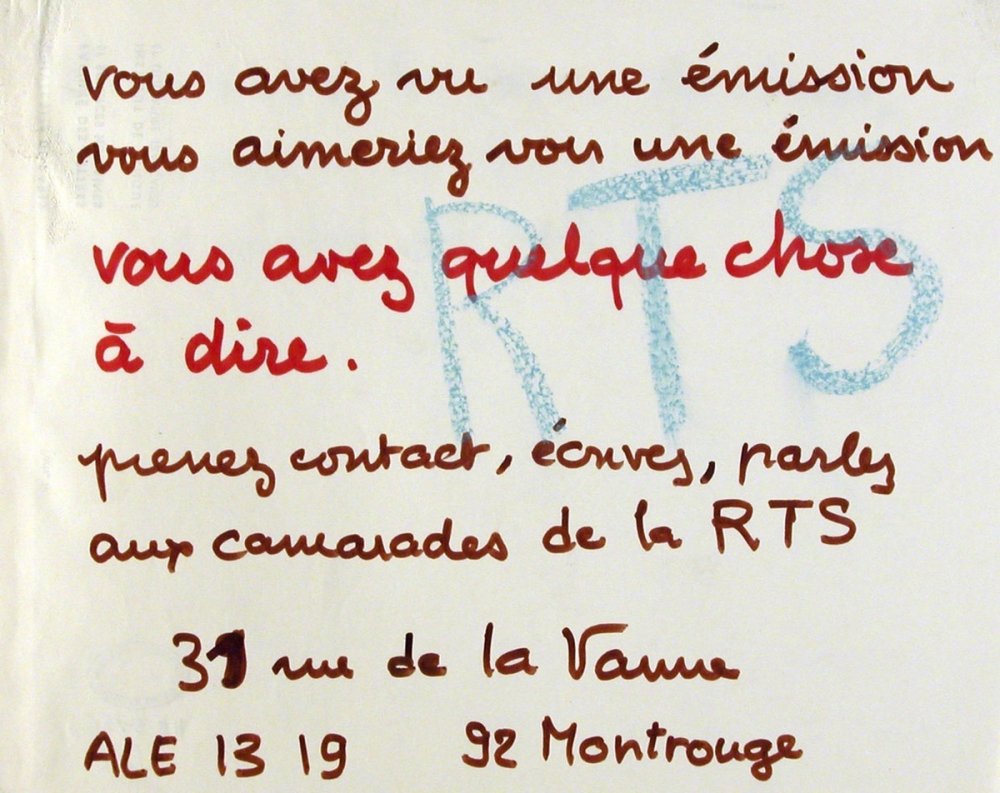 vous avez vu une émission
vous aimeriez voir une émission
RTS
vous avez quelque chose
à dire.
prenez contact, écrivez, parlez
aux camarades de la RTS
31 rue de la Vanne
ALE 13 19 92 Montrouge